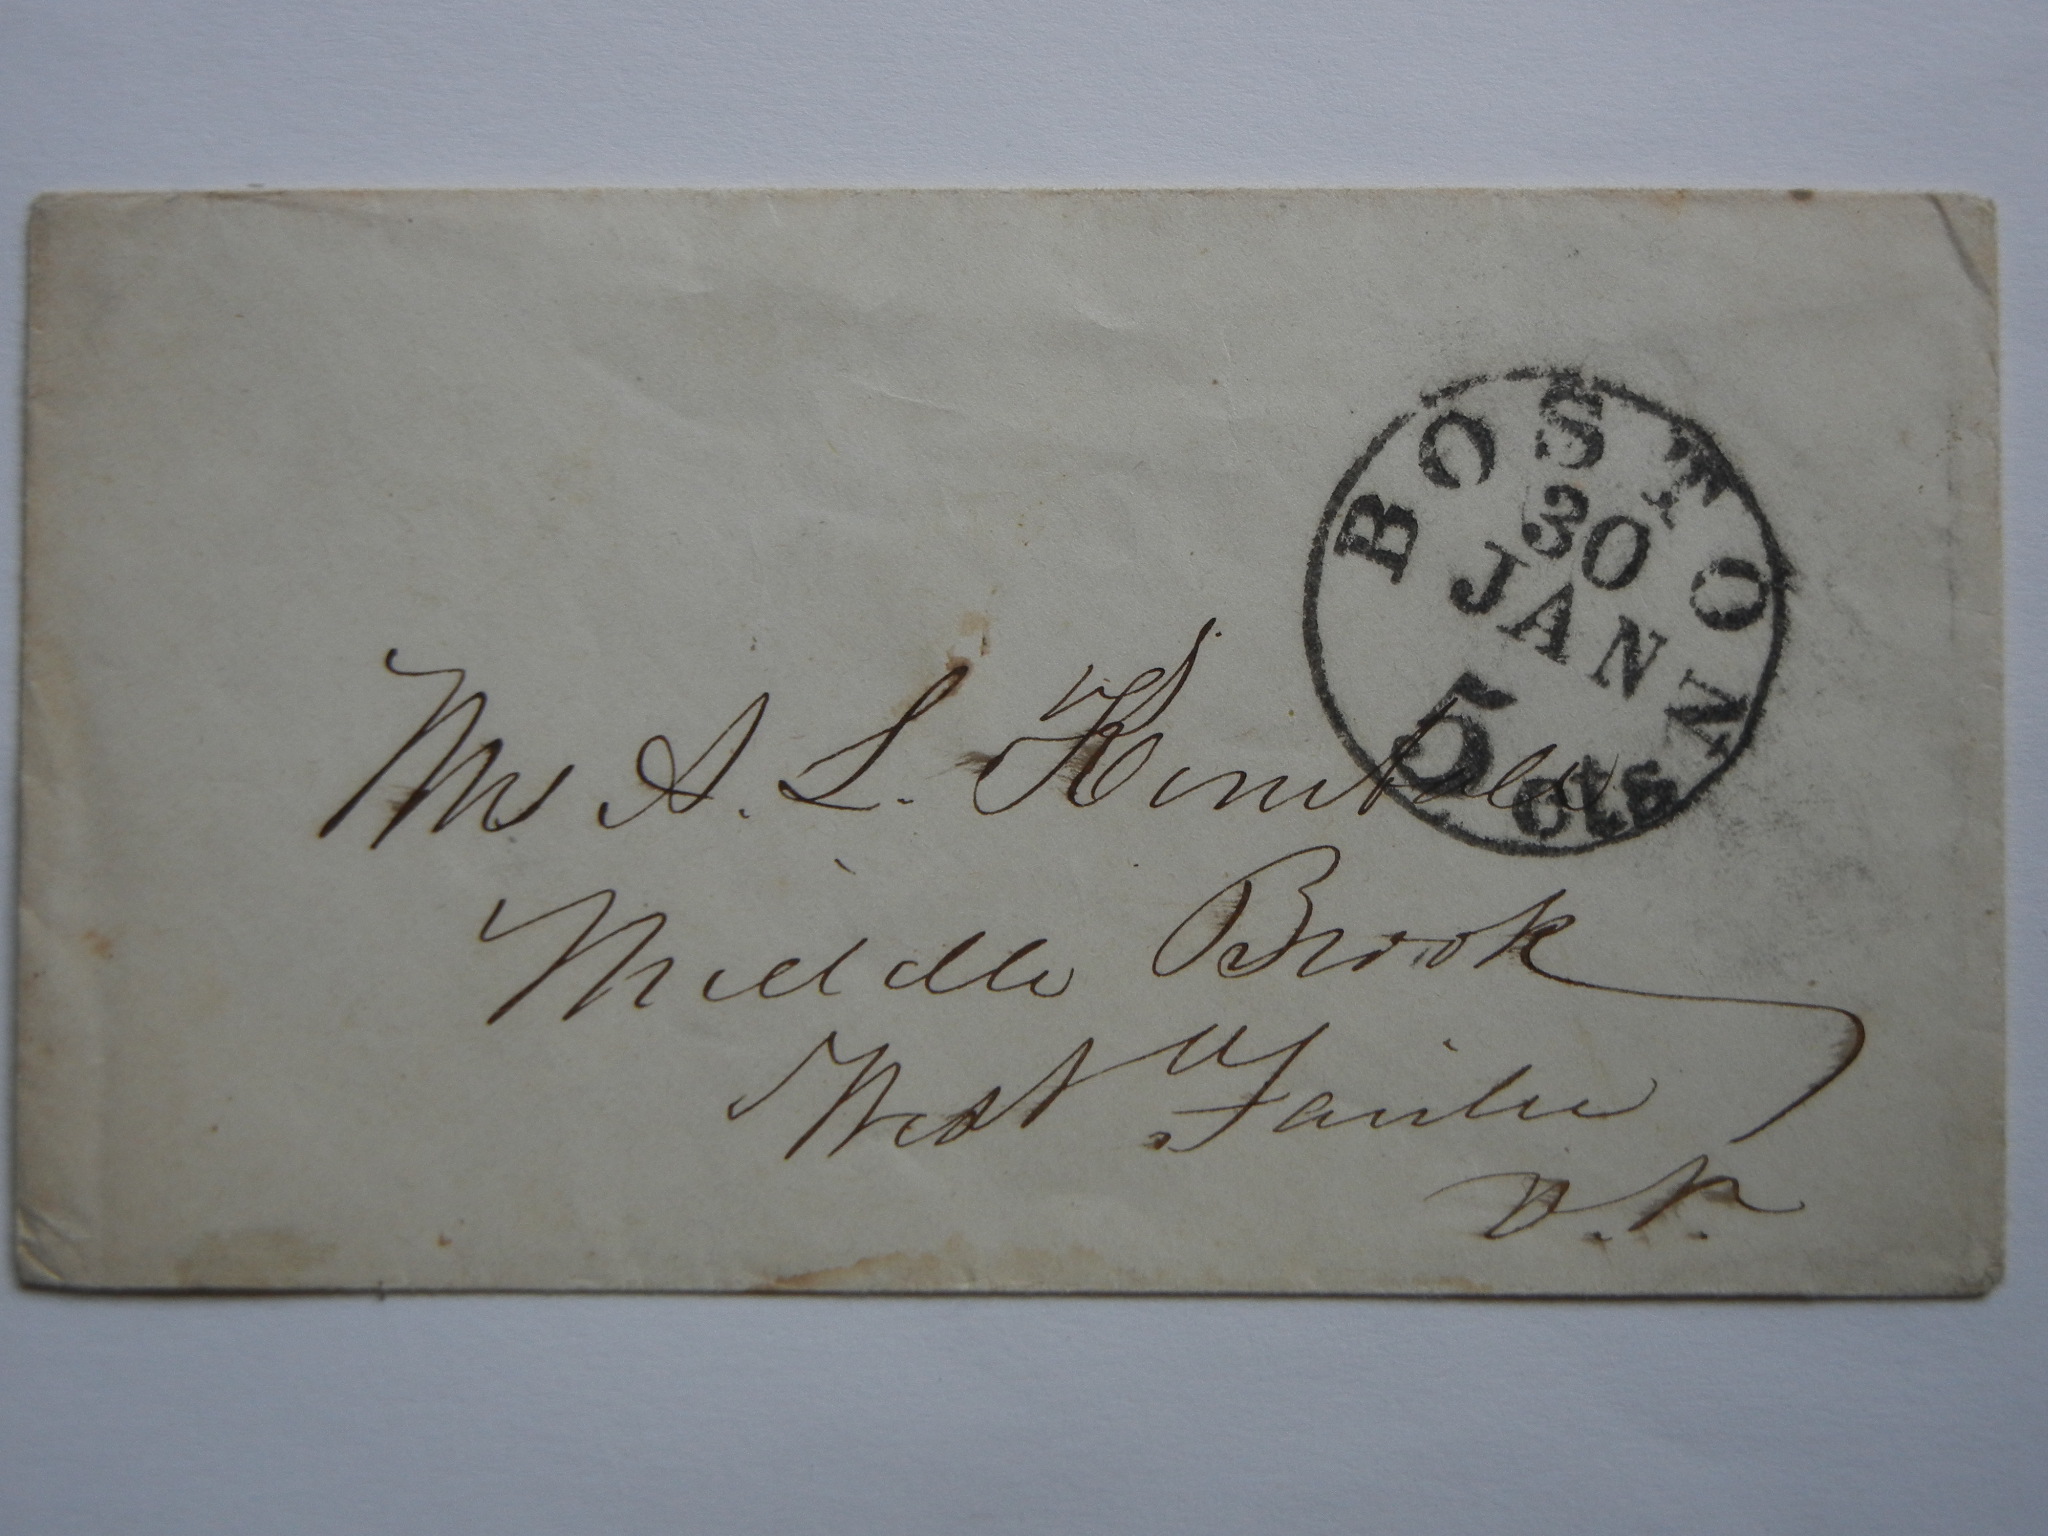 BOSTON
30
JAN
5 cts
Mr A. L. Kimball
Middle Brook
West Fairlee